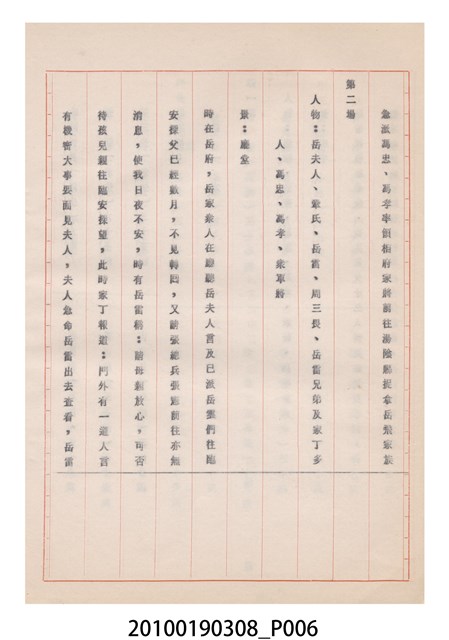 急派馮忠、馮孝率領相府家將前往湯陰縣捉拿岳飛家族
第二場
人物：岳夫人、衆氏、岳雷、周三畏、岳雷兄弟及家丁多
人、馮忠、馮孝、衆軍將
景：廳堂
時在岳府，岳家衆人在廳聽岳夫人言及已派岳雲們往臨
安探父已經數月，不見轉回，又請張總兵張憲前往亦無
消息，使我日夜不安，時有岳雷稱：請母親放心，可否
待孩兒親往臨安探望，此時家丁報道：門外有一道人言
有機密大事要面見夫人，夫人急命岳雷出去查看，岳雷
20100190308_P006